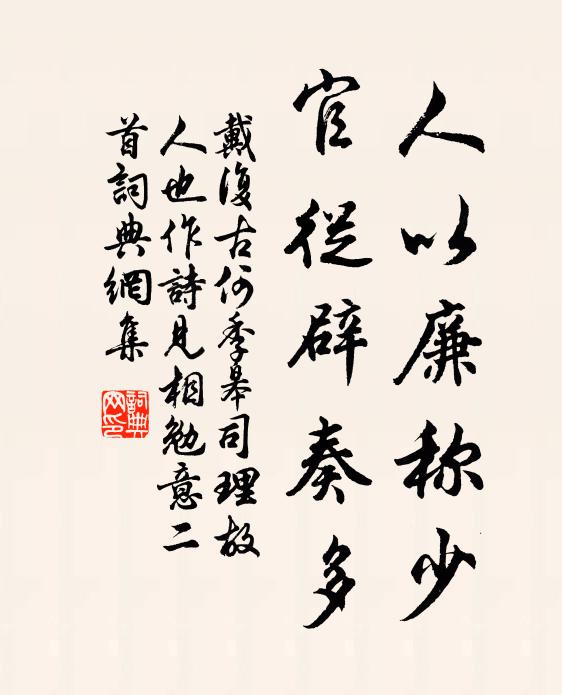 人以廉称少
官从辟奏多
戴復古何季皋司理故
人也作詩見相勉意二
首詞典網集
詞典网印